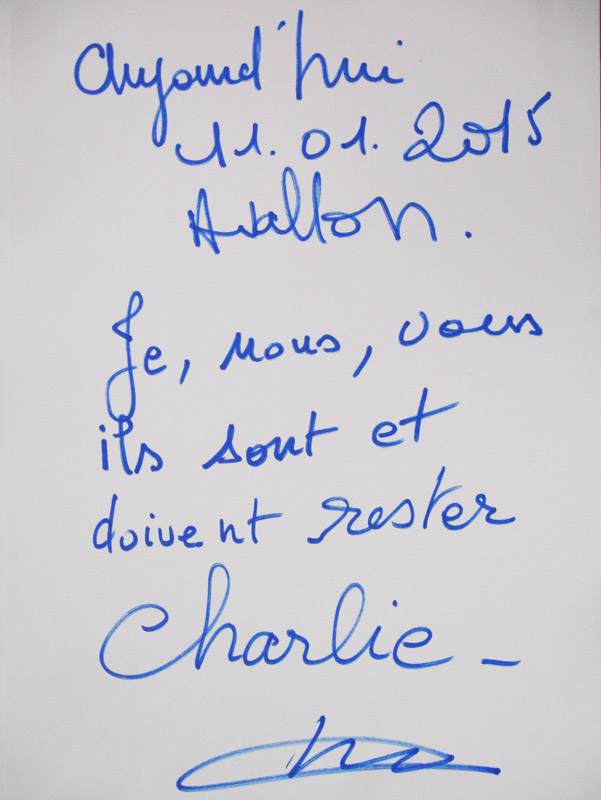 Aujourd'hui
11.01.2015
Avallon.
Je, nous, vous
ils sont et
doivent rester
Charlie -